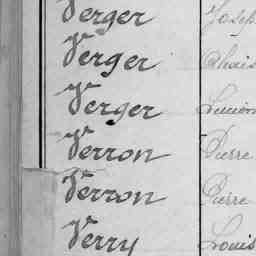 Verger Joseph
Verger
Verger
Verron Pierre
Verron Pierre
Verry Louis